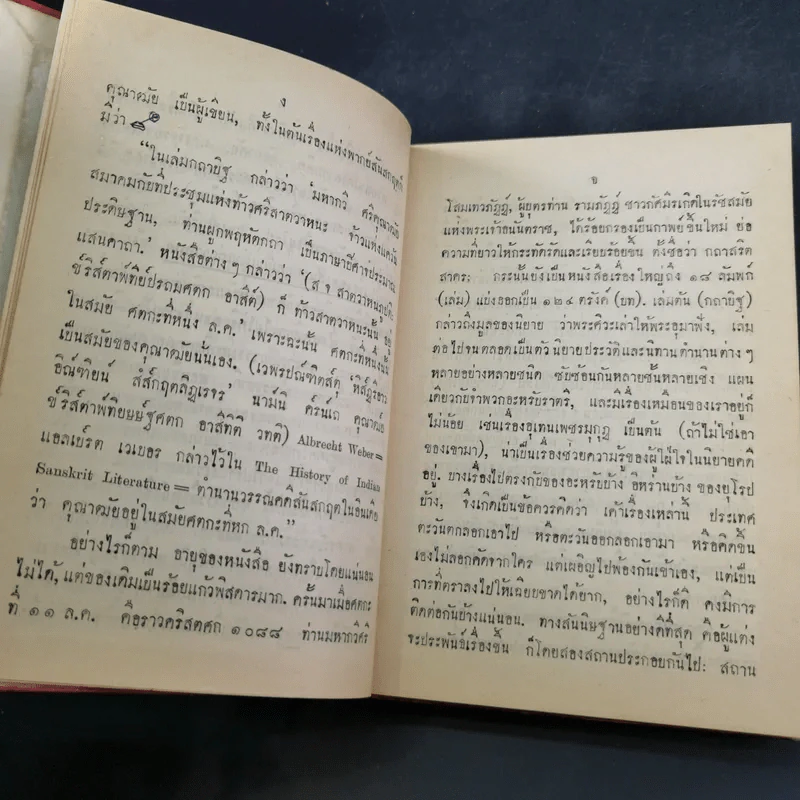 ง
คุณาฒมัย เป็นผู้เขียน, ทั้งในต้นเรื่องแห่งพากย์สันสกฤตก็
มีว่า
"ในเล่มกถาปิฐ กล่าวว่า 'มหากวี ศริคุณาฒมัย
สมาคมกัยที่ประชุมแห่งท้าวศริสาตวาหนะ ท้าวแห่งแคว้น
ประดิษฐาน, ท่านผูกพฤหัตกถา เป็นภาษาปีศาจประมาณ
แสนคาถา.' หนังสือต่างๆ กล่าวว่า '(ส จ สาตวาหนภูปติะ
ข์ริส์ตาพ์ทีย์ปรถมศตก อาสีต์) ก็ ท้าวสาตวาหะนั้น อยู่
ในสมัย ศตกะที่หนึ่ง ล.ค.' เพราะฉะนั้น ศตกะที่หนึ่งนั้น
เป็นสมัยของคุณาฒมัยนั้นเอง. (เวพรปณ์ฑิตส์ตุ 'หิส์ฏริอาว
อิณ์ฑิยน์ สํส์กฤตลิฏเรเจร' นาม์นิ คํรน์เถ คุณาฒ์ย
ข์ริส์ตาพ์ทียษษ์ฐศตก อาสีทิติ วทติ) Albrecht Weber=
แอลเบ์รต เวเบอร กล่าวไว้ใน The History of Indian
Sanskrit Literature = ตำนานวรรณคดีสันสกฤตในอินเดีย
ว่า คุณาฒมัยอยู่ในสมัยศตกะที่หก ล.ค."
อย่างไรก็ตาม อายุของหนังสือ ยังทราบโดยแน่นอน
ไม่ได้, แต่ของเดิมเป็นร้อยแก้วพิสดารมาก. ครั้นมาเมื่อศตกะ
ที่ ๑๑ ล.ค. คือราวคริสตศก ๑๐๘๘ ท่านมหากวีศริ
จ
โสมเทวภัฏฏ์, ผู้บุตรท่าน รามภัฏฏ์ ชาวกัศมิรเกิดในรัชสมัย
แห่งพระเจ้าอนันตราช, ได้ร้อยกรองเป็นกาพย์ขึ้นใหม่ ย่อ
ความที่ยาวให้กระทัดรัดและเรียบร้อยขึ้น ตั้งชื่อว่า กถาสริต
สาคร: กระนั้นยังเป็นหนังสือเรื่องใหญ่ถึง ๑๘ ลัมพก์
(เล่ม) แบ่งออกเป็น ๑๒๔ ตรังค์ (บท). เล่มต้น (กถาปิฐ)
กล่าวถึงมูลของนิยาย ว่าพระศิวะเล่าให้พระอุมาฟัง, เล่ม
ต่อไปจนตลอดเป็นตัวนิยายประวัติและนิทานตำนานต่างๆ
หลายอย่างหลายชนิด ซับซ้อนกันหลายชั้นหลายเชิง แผน
เดียวกับจำพวกอะหรับราตรี, และมีเรื่องเหมือนของเราอยู่ก็
ไม่น้อย เช่นเรื่องอุเทนเพชรมุกุฏ เป็นต้น (ถ้าไม่ใช่เอา
ของเขามา), น่าเป็นเรื่องช่วยความรู้ของผู้ใฝ่ใจในนิยายคดี
อยู่. บางเรื่องไปตรงกับของอะหรับบ้าง อิหร่านบ้าง ของยุโรป
บ้าง, จึงเกิดเป็นข้อควรคิดว่า เค้าเรื่องเหล่านี้ ประเทศ
ตะวันตกลอกเอาไป หรือตะวันออกลอกเอามา หรือคิดขึ้น
เองไม่ลอกคัดจากใคร แต่เผอิญไปพ้องกันเข้าเอง, แต่เป็น
การที่ตราลงไปให้เฉียบขาดได้ยาก, อย่างไรก็ดี คงมีการ
ติดต่อกันบ้างแน่นอน. ทางสันนิษฐานอย่างดีที่สุด คือผู้แต่ง
จะประพันธ์เรื่องขึ้น ก็โดยสองสถานประกอบกันไป: สถาน